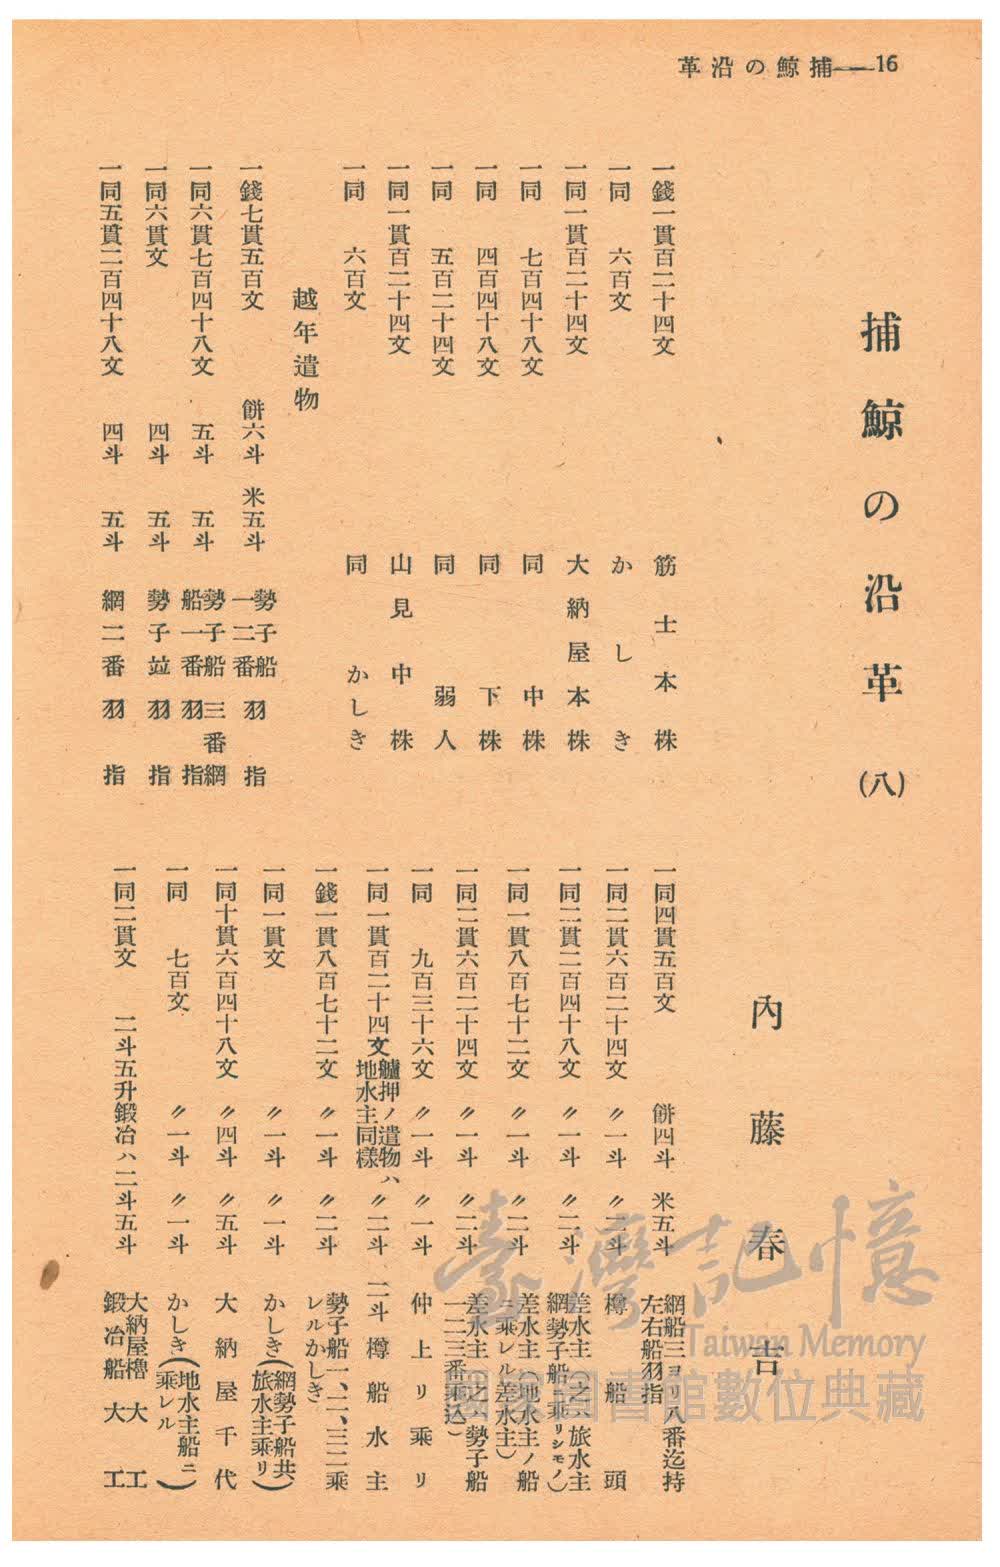 革沿の鯨捕——16
捕鯨の沿革(八)
內藤春吉
一錢一貫百二十四文 筋士本株
一同 六百文 かしき
一同一貫百二十四文 大納屋本株
一同 七百四十八文 同 中株
一同 四百四十八文 同 下株
一同 五百二十四文 同 弱人
一同一貫百二十四文 山見中株
一同 六百文 同 かしき
越年遣物
一錢七貫五百文 餅六斗 米五斗 勢子船一二番羽指
一同六貫七百四十八文 五斗 五斗 勢子船三番網船一番羽指
一同六貫文 四斗 五斗 勢子並羽指
一同五貫二百四十八文 四斗 五斗 網二番羽指
一同四貫五百文 餅四斗 米五斗 網船三ヨリ八番迄持左右船羽指
一同二貫六百二十四文 〃一斗 〃二斗 樽船頭
一同二貫二百四十八文 〃一斗 〃二斗 差水主(之ハ旅水主網勢子船ニ乘リシモノ)
一同一貫八百七十二文 〃一斗 〃二斗 差水主(地水主ノ船ニ乘レル差水主)
一同二貫六百二十四文 〃一斗 〃二斗 差水主(之ハ勢子船一二三番乘込)
一同 九百三十六文 〃一斗 〃一斗 仲上リ乘リ
一同一貫百二十四文 艫押ノ遣物ハ地水主同樣 〃二斗 二斗樽船水主
一錢一貫八百七十二文 〃一斗 〃二斗 勢子船一、二、三二乘レルかしき
一同一貫文 〃一斗 〃一斗 かしき(網勢子船共旅水主乘リ)
一同十貫六百四十八文 〃四斗 〃五斗 大納屋千代
一同 七百文 〃一斗 〃一斗 かしき(地水主船ニ乘レル)
一同二貫文 二斗五升鍛冶ハ二斗五斗 大納屋櫓大工鍛冶船大工
臺灣記憶
Taiwan Memory
國家圖書館數位典藏